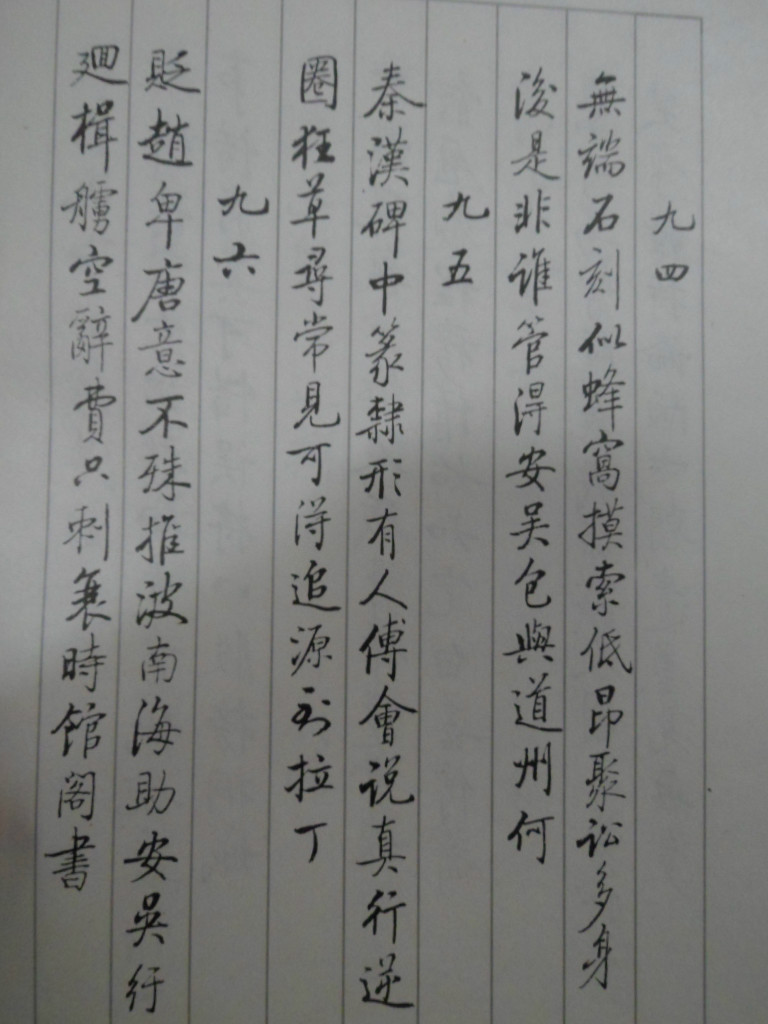 九四
無端石刻似蜂窩摸索低昂聚訟多身
後是非谁管得安吴包與道州何
九五
秦漢碑中篆隸形有人傅會说真行逆
圈狂草尋常見可得追源到拉丁
九六
貶趙卑唐意不殊推波南海助安吴行
廻楫艣空辭費只剩衰時館阁書